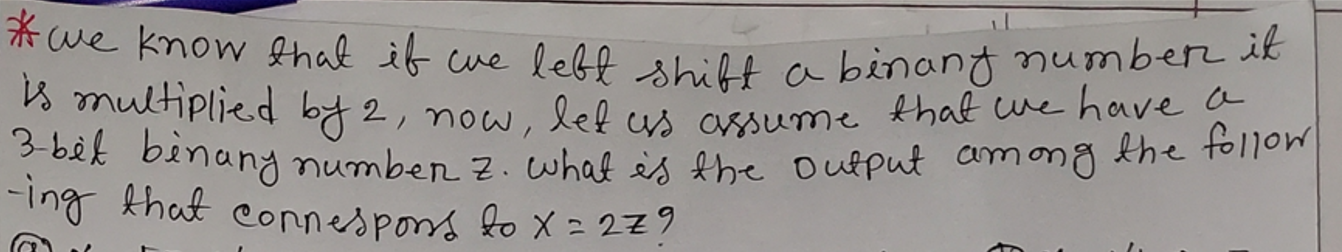 * we know that if we left shift a binary number it
is multiplied by 2, now, let us assume that we have a
3-bit binary number z. what is the output among the follow
-ing that connespons to x = 2z?
(a)